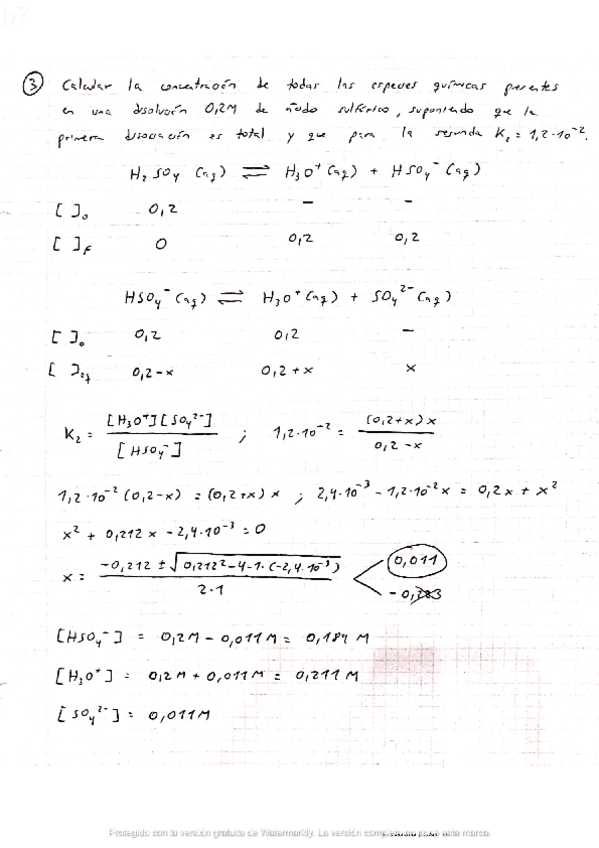 ③ Calcular la concentración de todas las especies químicas presentes
en una disolución 0,2M de ácido sulfúrico, suponiendo que la
primera disociación es total y que para la segunda K₂ = 1,2·10⁻².
H₂SO₄ (aq) ⇌ H₃O⁺(aq) + HSO₄⁻(aq)
[ ]₀ 0,2 – –
[ ]f 0 0,2 0,2
HSO₄⁻(aq) ⇌ H₃O⁺(aq) + SO₄²⁻(aq)
[ ]₀ 0,2 0,2 –
[ ]eq 0,2-x 0,2+x x
K₂ = [H₃O⁺][SO₄²⁻] / [HSO₄⁻] ; 1,2·10⁻² = (0,2+x)x / 0,2-x
1,2·10⁻²(0,2-x) = (0,2+x)x ; 2,4·10⁻³ - 1,2·10⁻²x = 0,2x + x²
x² + 0,212x - 2,4·10⁻³ = 0
x = -0,212 ± √0,212² - 4·1·(-2,4·10⁻³) / 2·1 0,011
[HSO₄⁻] = 0,2M - 0,011M = 0,189 M
[H₃O⁺] = 0,2M + 0,011M = 0,211M
[SO₄²⁻] = 0,011M
Protegido con la versión gratuita de Watermarkly. La versión completa no pone esta marca.